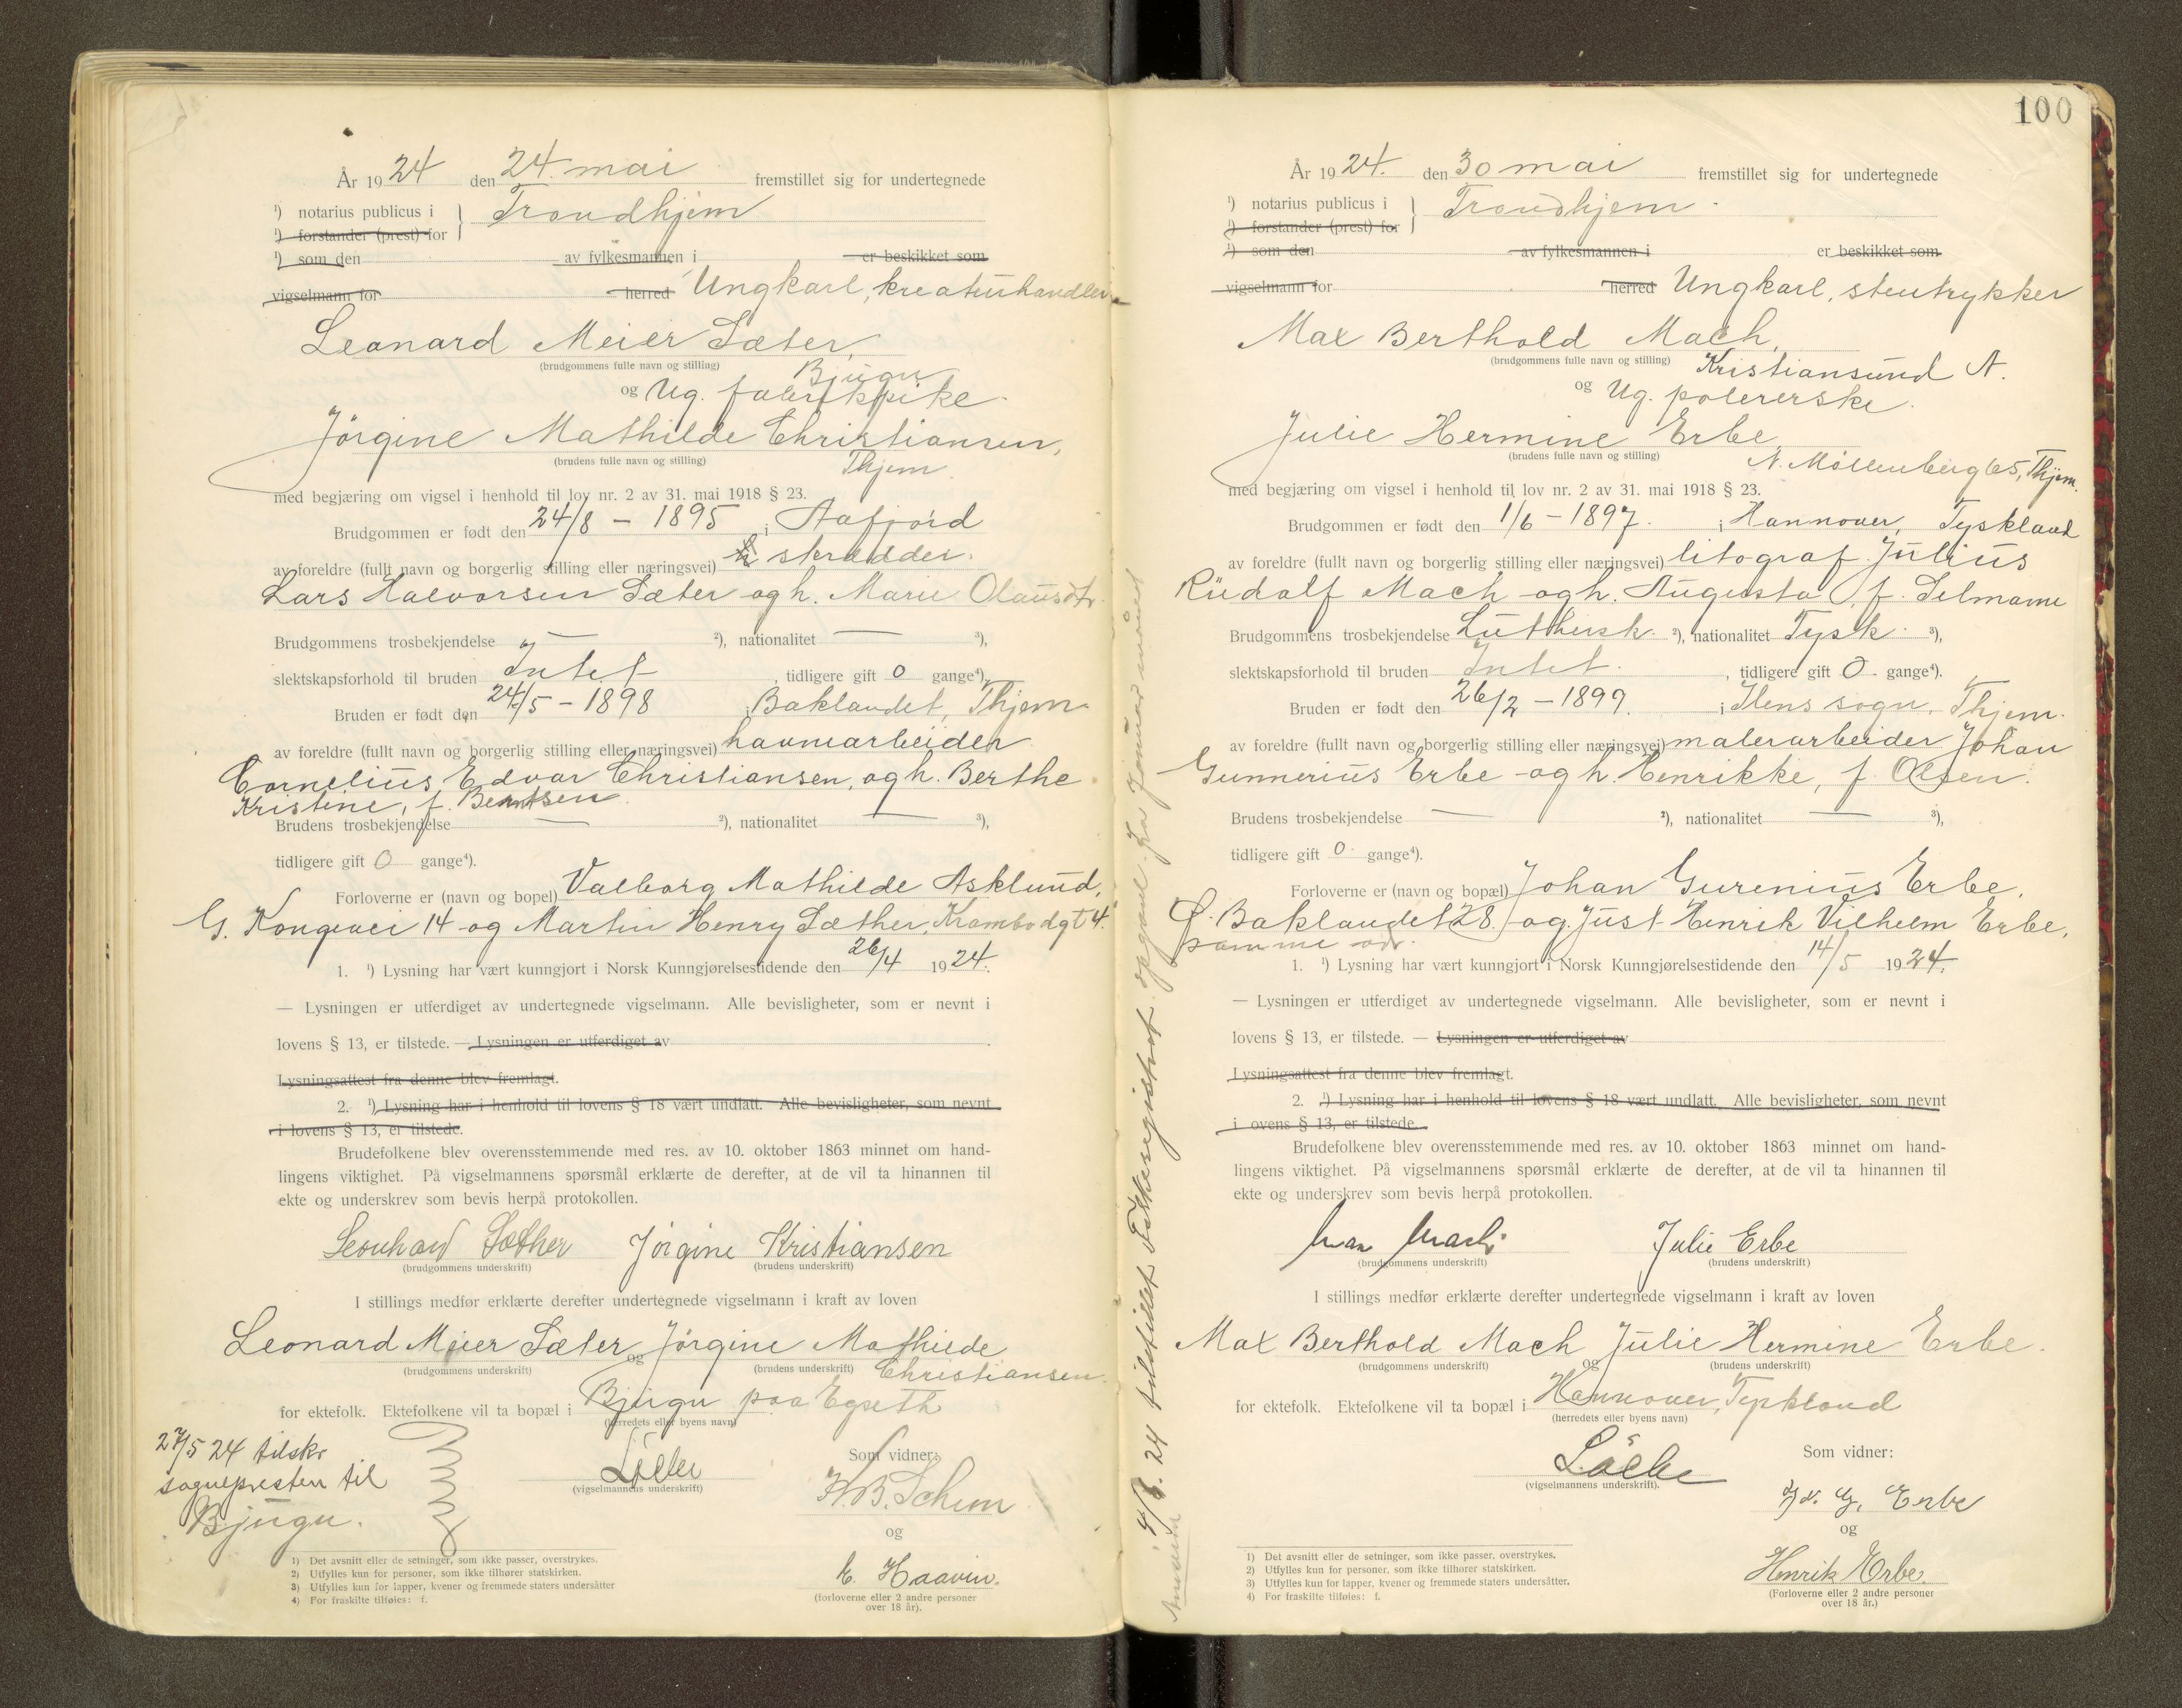 År 1924 den 24. mai fremstillet sig for undertegnede
¹) notarius publicus i } Trondhjem
¹) forstander (prest) for
¹) som den av fylkesmannen i er beskikket som
vigselmann for herred Ungkarl, kreaturhandler
Leonard Meier Sæter,
(brudgommens fulle navn og stilling)
Bjugn
og Ug. fabrikkpike.
Jørgine Mathilde Christiansen,
(brudens fulle navn og stilling)
Thjem
med begjæring om vigsel i henhold til lov nr. 2 av 31. mai 1918 § 23.
Brudgommen er født den 24/8 - 1895 i Aafjord
av foreldre (fullt navn og borgerlig stilling eller næringsvei) skrædder.
Lars Halvorsen Sæter og h. Marie Olausdtr.
Brudgommens trosbekjendelse — ²), nationalitet — ³),
slektskapsforhold til bruden Intet, tidligere gift 0 gange⁴).
Bruden er født den 24/5 - 1898 i Baklandet, Thjem.
av foreldre (fullt navn og borgerlig stilling eller næringsvei) havnearbeider
Cornelius Edvar Christiansen, og h. Berthe
Kristine, f. Berntsen.
Brudens trosbekjendelse — ²), nationalitet — ³),
tidligere gift 0 gange⁴).
Forloverne er (navn og bopel) Valborg Mathilde Asklund,
G. Kongevei 14 og Martin Henry Sæther, Krambodgt 4.
1. ¹) Lysning har vært kunngjort i Norsk Kunngjørelsestidende den 26/4 1924.
— Lysningen er utferdiget av undertegnede vigselmann. Alle bevisligheter, som er nevnt i
lovens § 13, er tilstede. — Lysningen er utferdiget av
Lysningsattest fra denne blev fremlagt.
2. ¹) Lysning har i henhold til lovens § 18 vært undlatt. Alle bevisligheter, som nevnt
i lovens § 13, er tilstede.
Brudefolkene blev overensstemmende med res. av 10. oktober 1863 minnet om hand-
lingens viktighet. På vigselmannens spørsmål erklærte de derefter, at de vil ta hinannen til
ekte og underskrev som bevis herpå protokollen.
Leonhard Sæther Jørgine Kristiansen
(brudgommens underskrift) (brudens underskrift)
I stillings medfør erklærte derefter undertegnede vigselmann i kraft av loven
Leonard Meier Sæter og Jørgine Mathilde
(brudgommens underskrift) (brudens underskrift) Christiansen.
for ektefolk. Ektefolkene vil ta bopæl i Bjugn paa Egseth
(herredets eller byens navn)
27/5 24 tilskr
sognepresten til
Bjugn.
(vigselmannens underskrift)
Som vidner:
H.B. Schem
og
E. Haavin.
(forloverne eller 2 andre personer
over 18 år).
1) Det avsnitt eller de setninger, som ikke passer, overstrykes.
2) Utfylles kun for personer, som ikke tilhører statskirken.
3) Utfylles kun for lapper, kvener og fremmede staters undersåtter
4) For fraskilte tilføies: f.
4/6. 24 tilstillet Folkeregistret opgave fra januar måned
100
År 1924. den 30 mai fremstillet sig for undertegnede
¹) notarius publicus i } Trondhjem.
¹) forstander (prest) for
¹) som den av fylkesmannen i er beskikket som
vigselmann for herred Ungkarl, stentrykker
Max Berthold Mach,
(brudgommens fulle navn og stilling) Kristiansund N.
og Ug. polererske.
Julie Hermine Erbe,
(brudens fulle navn og stilling)
N. Møllenberg 65, Thjem.
med begjæring om vigsel i henhold til lov nr. 2 av 31. mai 1918 § 23.
Brudgommen er født den 1/6 - 1897. i Hannover, Tyskland
av foreldre (fullt navn og borgerlig stilling eller næringsvei) litograf Julius
Rudolf Mach og h. Augusta, f. Selmame
Brudgommens trosbekjendelse Luthersk. ²), nationalitet Tysk. ³),
slektskapsforhold til bruden Intet., tidligere gift 0 gange⁴).
Bruden er født den 26/2 - 1899. i Ilens sogn, Thjem.
av foreldre (fullt navn og borgerlig stilling eller næringsvei) malerarbeider Johan
Gunnerius Erbe og h. Henrikke, f. Olsen.
Brudens trosbekjendelse — ²), nationalitet — ³),
tidligere gift 0 gange⁴).
Forloverne er (navn og bopæl) Johan Gurenius Erbe,
Ø. Baklandet 28. og Just Henrik Vilhelm Erbe,
samme adr.
1. ¹) Lysning har vært kunngjort i Norsk Kunngjørelsestidende den 14/5 1924.
— Lysningen er utferdiget av undertegnede vigselmann. Alle bevisligheter, som er nevnt i
lovens § 13, er tilstede. — Lysningen er utferdiget av
Lysningsattest fra denne blev fremlagt.
2. ¹) Lysning har i henhold til lovens § 18 vært undlatt. Alle bevisligheter, som nevnt
i ovens § 13, er tilstede.
Brudefolkene blev overensstemmende med res. av 10. oktober 1863 minnet om hand-
lingens viktighet. På vigselmannens spørsmål erklærte de derefter, at de vil ta hinannen til
ekte og underskrev som bevis herpå protokollen.
Max Mach Julie Erbe
(brudgommens underskrift) (brudens underskrift)
I stillings medfør erklærte derefter undertegnede vigselmann i kraft av loven
Max Berthold Mach og Julie Hermine Erbe.
(brudgommens underskrift) (brudens underskrift)
for ektefolk. Ektefolkene vil ta bopæl i Hannover, Tyskland
(herredets eller byens navn)
(vigselmannens underskrift).
Som vidner:
Erbe
og
Henrik Erbe.
(Forloverne eller 2 andre personer
over 18 år.)
1) Det avsnitt eller de setninger, som ikke passer, overstrykes.
2) Utfylles kun for personer, som ikke tilhører statskirken.
3) Utfylles kun for lapper, kvener og fremmede staters undersåtter.
4) For fraskilte tilføies: f.